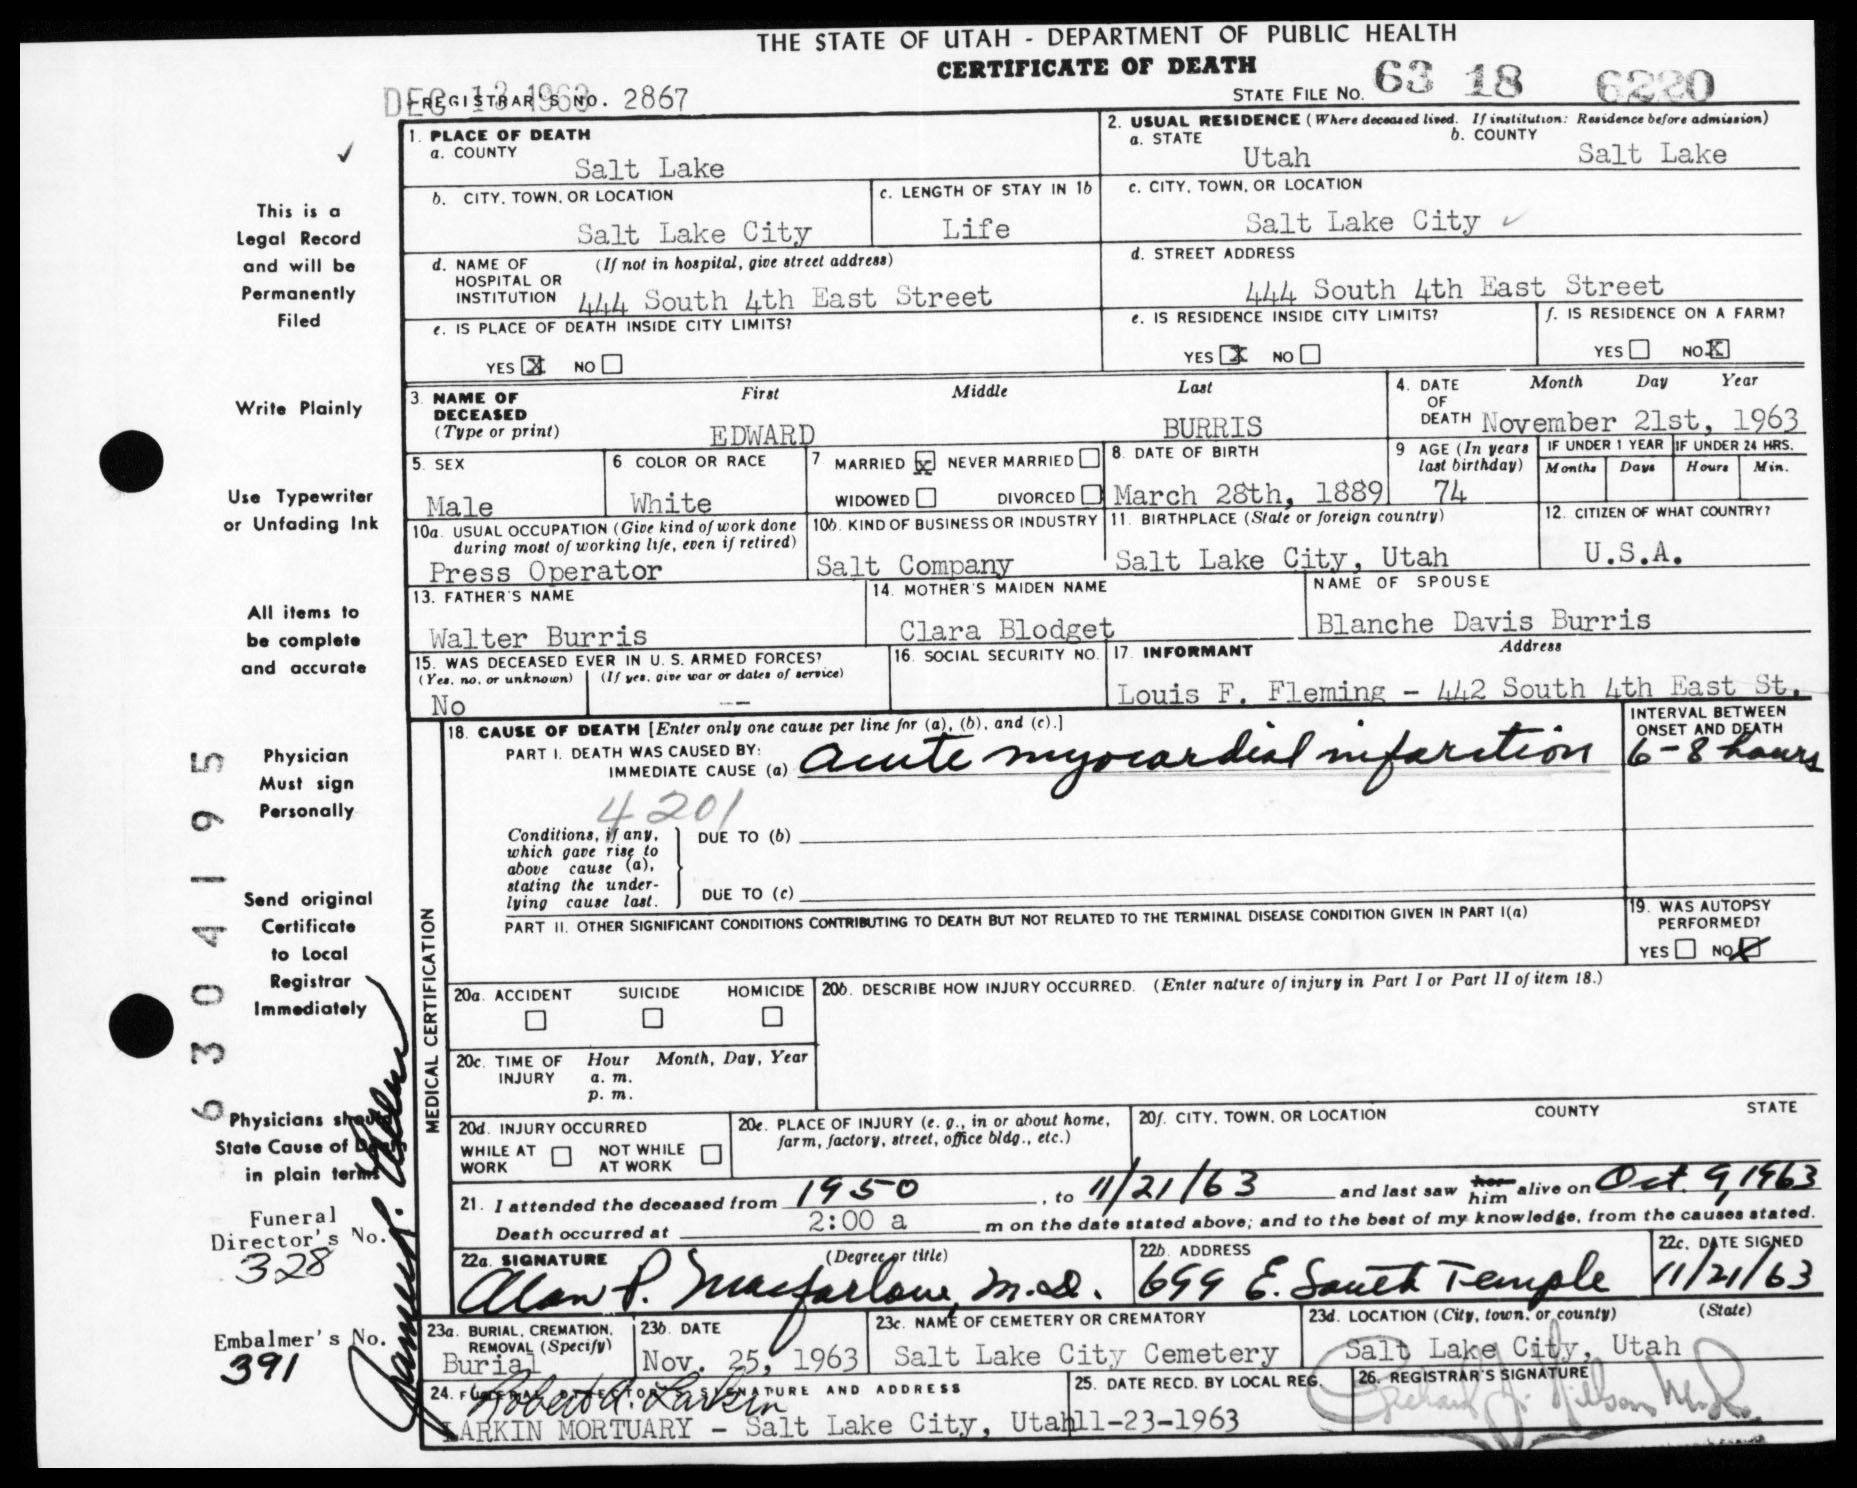 THE STATE OF UTAH - DEPARTMENT OF PUBLIC HEALTH
CERTIFICATE OF DEATH
DEC 13 1963
REGISTRAR'S NO. 2867
STATE FILE NO. 63 18 6220
1. PLACE OF DEATH
a. COUNTY
Salt Lake
2. USUAL RESIDENCE (Where deceased lived. If institution: Residence before admission)
a. STATE
Utah
b. COUNTY
Salt Lake
b. CITY, TOWN, OR LOCATION
Salt Lake City
c. LENGTH OF STAY IN 1b
Life
c. CITY, TOWN, OR LOCATION
Salt Lake City
d. NAME OF HOSPITAL OR INSTITUTION
(If not in hospital, give street address)
444 South 4th East Street
d. STREET ADDRESS
444 South 4th East Street
e. IS PLACE OF DEATH INSIDE CITY LIMITS?
YES X NO
e. IS RESIDENCE INSIDE CITY LIMITS?
YES X NO
f. IS RESIDENCE ON A FARM?
YES NO X
3. NAME OF DECEASED
(Type or print)
First Middle Last
EDWARD BURRIS
4. DATE OF DEATH
Month Day Year
November 21st, 1963
5. SEX
Male
6 COLOR OR RACE
White
7 MARRIED X NEVER MARRIED
WIDOWED DIVORCED
8. DATE OF BIRTH
March 28th, 1889
9 AGE (In years last birthday)
74
IF UNDER 1 YEAR
Months Days
IF UNDER 24 HRS.
Hours Min.
10a. USUAL OCCUPATION (Give kind of work done
during most of working life, even if retired)
Press Operator
10b. KIND OF BUSINESS OR INDUSTRY
Salt Company
11. BIRTHPLACE (State or foreign country)
Salt Lake City, Utah
12. CITIZEN OF WHAT COUNTRY?
U.S.A.
13. FATHER'S NAME
Walter Burris
14. MOTHER'S MAIDEN NAME
Clara Blodget
NAME OF SPOUSE
Blanche Davis Burris
15. WAS DECEASED EVER IN U. S. ARMED FORCES?
(Yes, no, or unknown) (If yes, give war or dates of service)
No --
16. SOCIAL SECURITY NO.
17. INFORMANT Address
Louis F. Fleming - 442 South 4th East St.
MEDICAL CERTIFICATION
18. CAUSE OF DEATH [Enter only one cause per line for (a), (b), and (c).]
PART I. DEATH WAS CAUSED BY:
IMMEDIATE CAUSE (a) Acute myocardial infarction
INTERVAL BETWEEN
ONSET AND DEATH
6-8 hours
4201
Conditions, if any,
which gave rise to
above cause (a),
stating the under-
lying cause last.
DUE TO (b)
DUE TO (c)
PART II. OTHER SIGNIFICANT CONDITIONS CONTRIBUTING TO DEATH BUT NOT RELATED TO THE TERMINAL DISEASE CONDITION GIVEN IN PART I(a)
19. WAS AUTOPSY PERFORMED?
YES NO X
20a. ACCIDENT SUICIDE HOMICIDE
20b. DESCRIBE HOW INJURY OCCURRED. (Enter nature of injury in Part I or Part II of item 18.)
20c. TIME OF INJURY
Hour Month, Day, Year
a. m.
p. m.
20d. INJURY OCCURRED
WHILE AT WORK NOT WHILE AT WORK
20e. PLACE OF INJURY (e. g., in or about home,
farm, factory, street, office bldg., etc.)
20f. CITY, TOWN, OR LOCATION COUNTY STATE
21. I attended the deceased from 1950, to 11/21/63 and last saw her him alive on Oct. 9, 1963
Death occurred at 2:00 a m on the date stated above; and to the best of my knowledge, from the causes stated.
22a. SIGNATURE (Degree or title)
Alan P. Macfarlane, M.D.
22b. ADDRESS
699 E. South Temple
22c. DATE SIGNED
11/21/63
23a. BURIAL, CREMATION,
REMOVAL (Specify)
Burial
23b. DATE
Nov. 25, 1963
23c. NAME OF CEMETERY OR CREMATORY
Salt Lake City Cemetery
23d. LOCATION (City, town, or county) (State)
Salt Lake City, Utah
24. FUNERAL DIRECTOR'S SIGNATURE AND ADDRESS
Robert A. Larkin
LARKIN MORTUARY - Salt Lake City, Utah
25. DATE RECD. BY LOCAL REG.
11-23-1963
26. REGISTRAR'S SIGNATURE
This is a
Legal Record
and will be
Permanently
Filed
Write Plainly
Use Typewriter
or Unfading Ink
All items to
be complete
and accurate
Physician
Must sign
Personally
Send original
Certificate
to Local
Registrar
Immediately
Physicians should
State Cause of Death
in plain terms
Funeral
Director's No.
328
Embalmer's No.
391
6304195